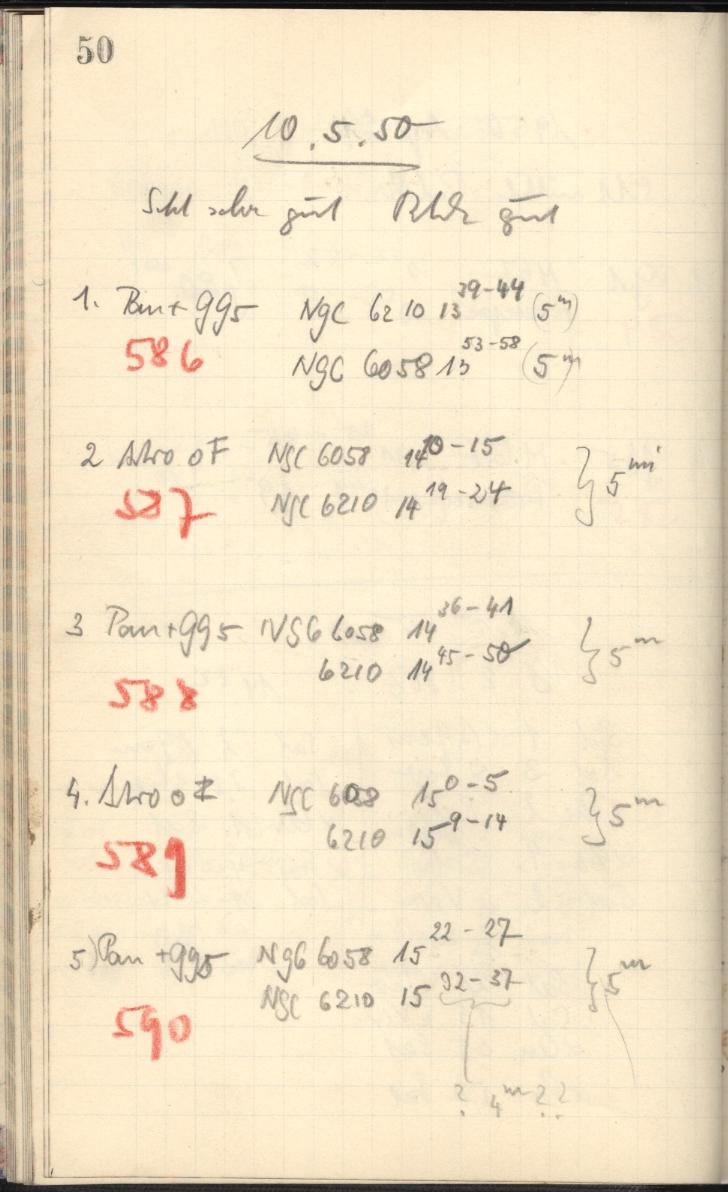 50
10.5.50
sehr gut gut
1. Pan + GG5 NGC 6210 13 39-44 (5m)
586 NGC 6058 13 53-58 (5m)
2 Astro oF NGC 6058 14 10-15
587 NGC 6210 14 19-24 } 5m
3 Pan + GG5 NGC 6058 14 36-41
6210 14 45-50 } 5m
588
4. Astro oF NGC 6058 15 0-5
6210 15 9-14 } 5m
589
5) Pan + GG5 NGC 6058 15 22-27
NGC 6210 15 32-37 } 5m
590
? 4m ??